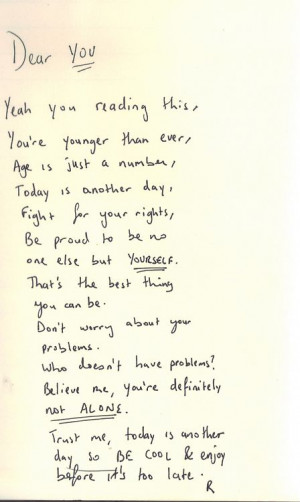 Dear YOU
Yeah you reading this,
You're younger than ever,
Age is just a number,
Today is another day,
Fight for your rights,
Be proud to be no
one else but YOURSELF.
That's the best thing
you can be.
Don't worry about your
problems.
Who doesn't have problems?
Believe me, you're definitely
not ALONE.
Trust me, today is another
day so BE COOL & enjoy
before it's too late.
R